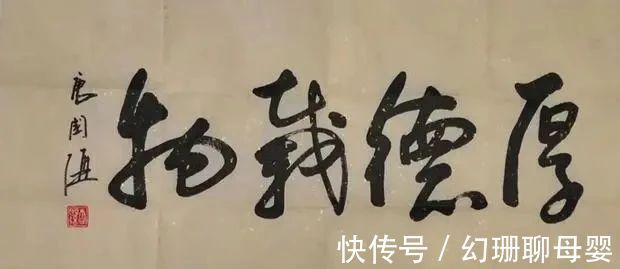 厚德載物
快传号 / 幻珊聊母婴